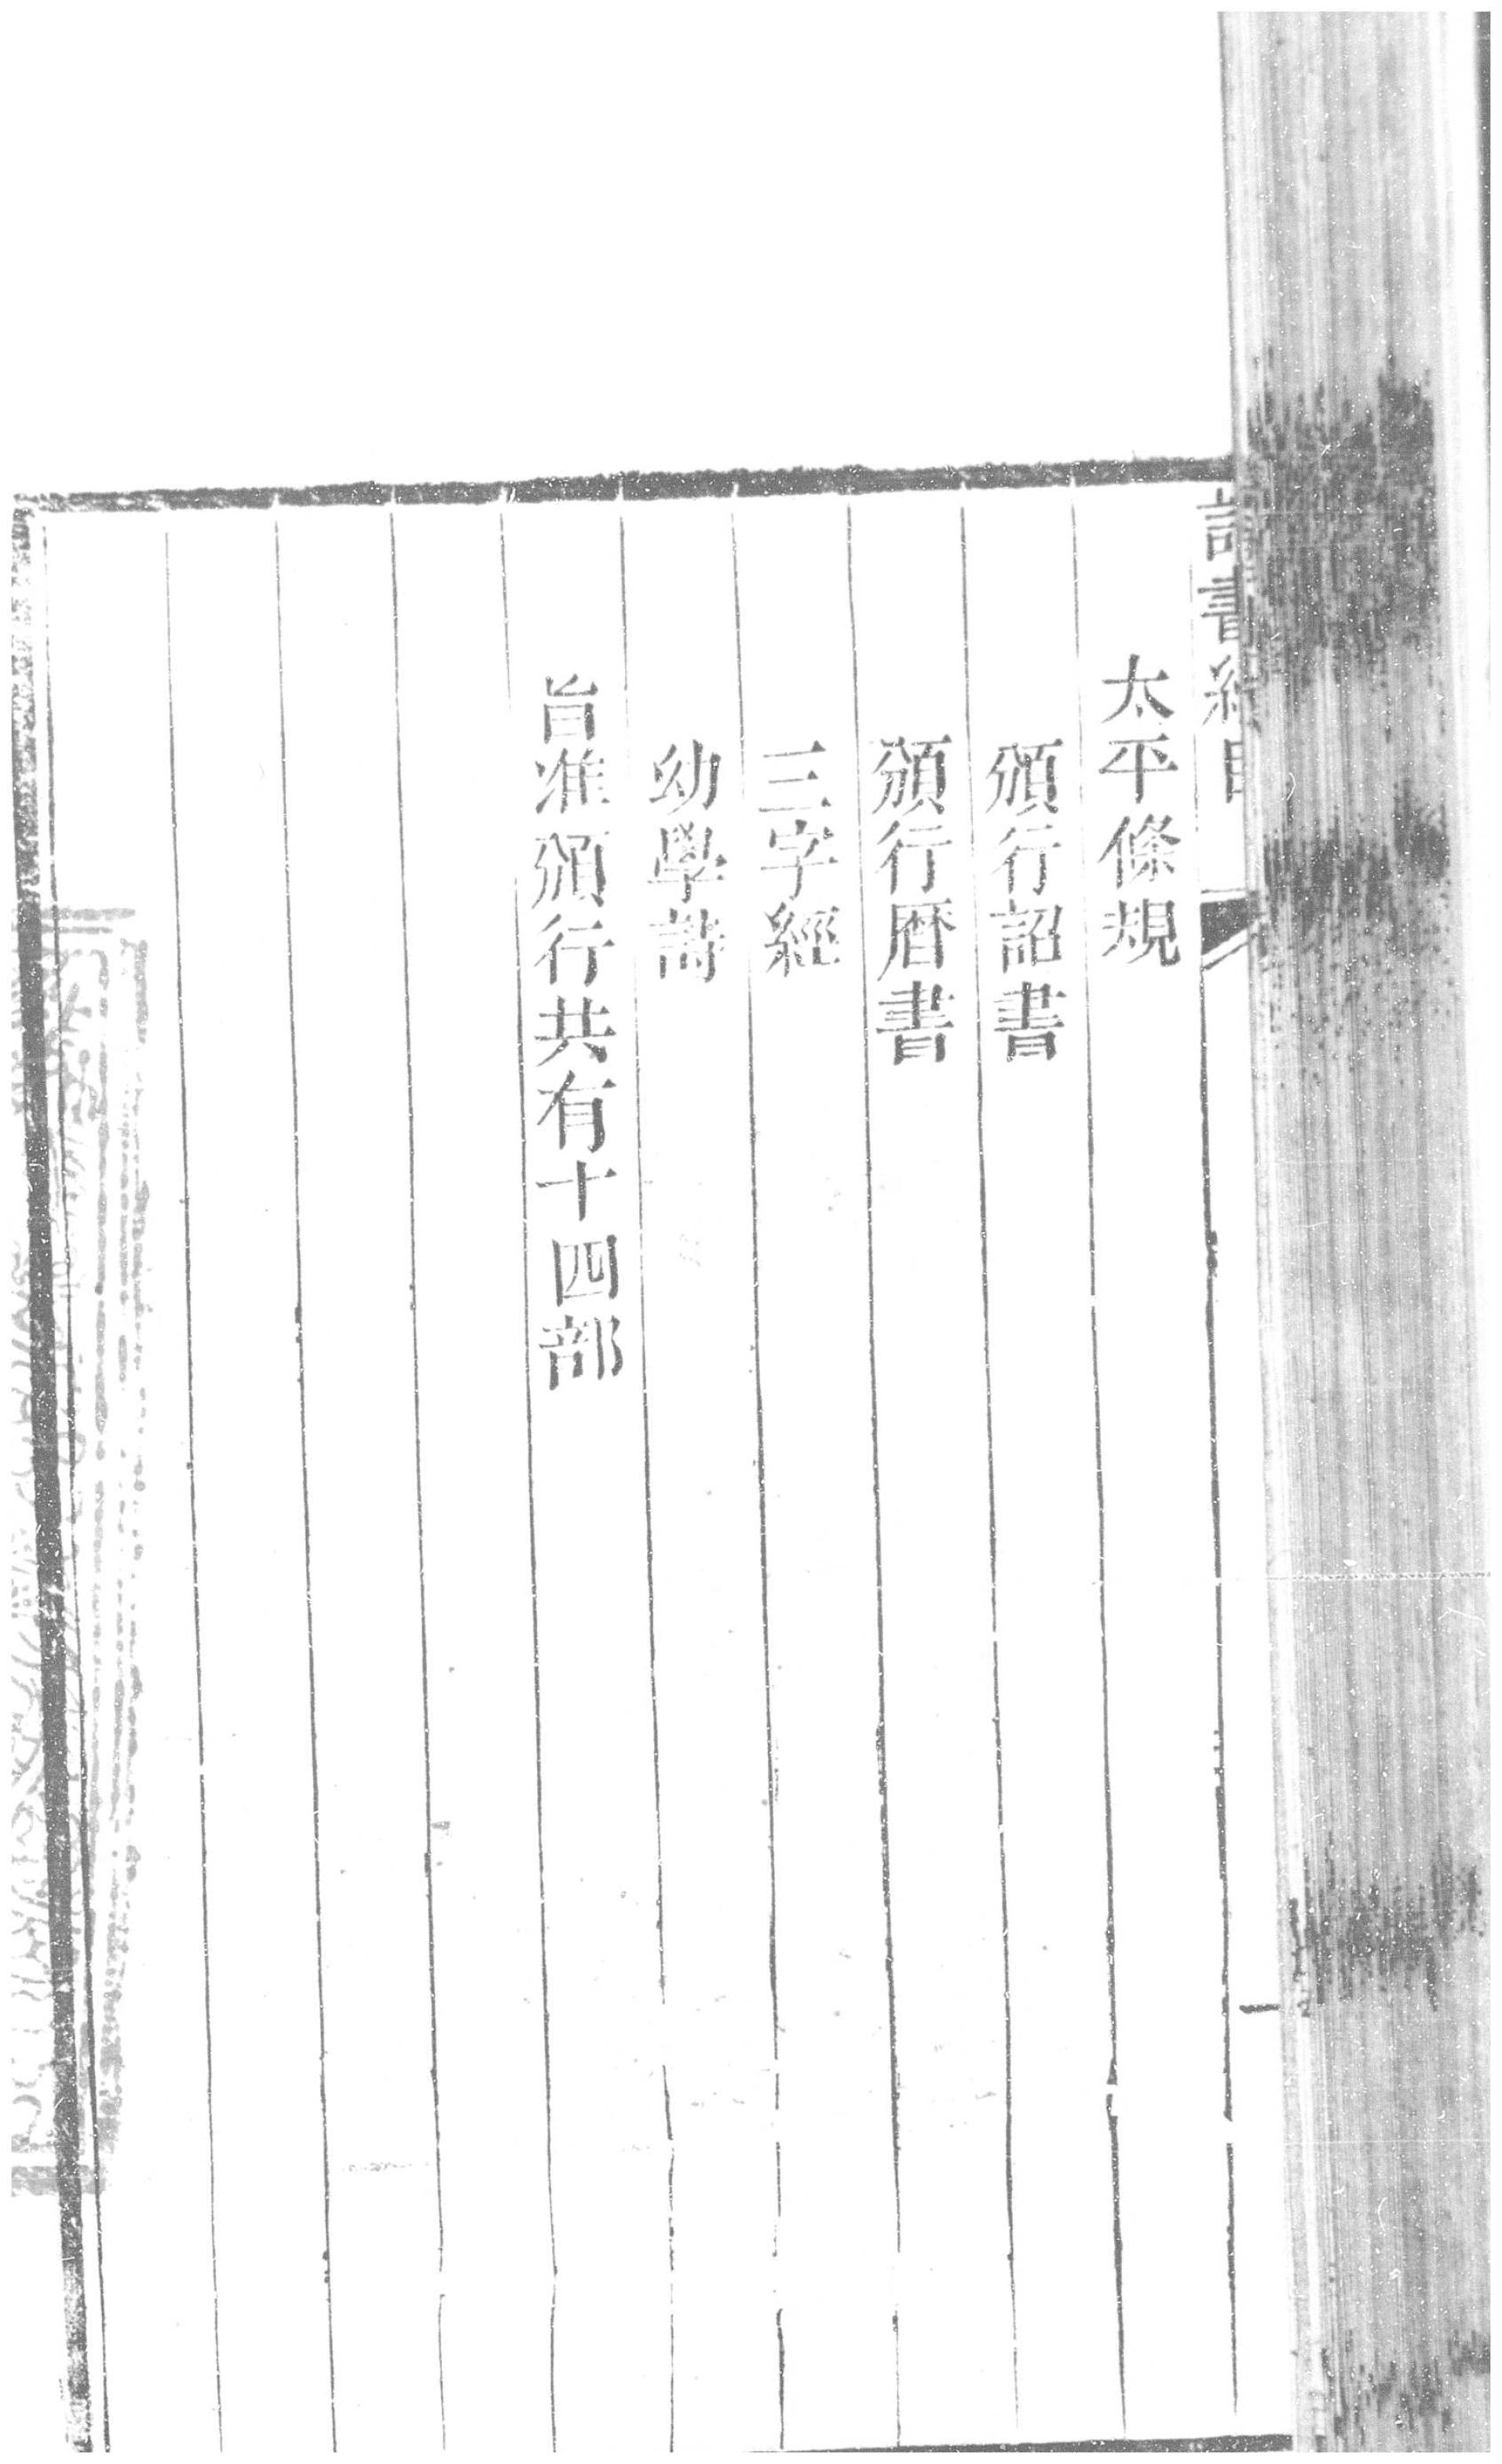 書總目
一
太平條規
頒行詔書
頒行暦書
三字經
幼學詩
旨准頒行共有十四部